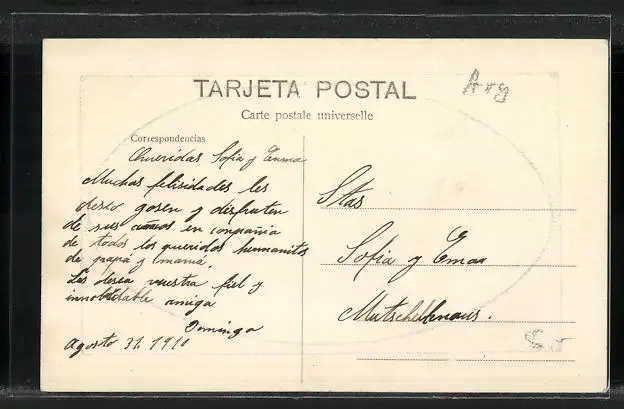 TARJETA POSTAL
Arg
Carte postale universelle
Correspondencias
Queridas Sofia y Emma
Muchas felisidades les
deseo gosen y disfruten
de sus años en conpañia
de todos los queridos hermanitos
de papá y mamá.
Les desea vuestra fiel y
innobidable amiga
Dominga
Agosto 31. 1910
Stas
Sofia y Emma
Mutschelknaus.